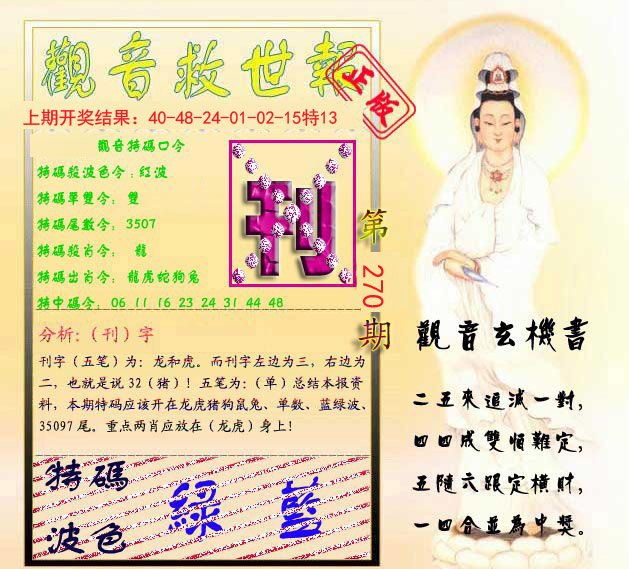 觀音救世報
正版
上期开奖结果：40-48-24-01-02-15特13
觀音特碼口令
特碼殺波色令：紅波
特碼單雙令：雙
特碼尾數令：3507
特碼殺肖令：龍
特碼出肖令：龍虎蛇狗兔
特中碼令：06 11 16 23 24 31 44 48
刊
第
270
期
分析：（刊）字
刊字（五笔）为：龙和虎。而刊字左边为三，右边为
二，也就是说 32（猪）！五笔为：（单）总结本报资
料，本期特码应该开在龙虎猪狗鼠兔、单数、蓝绿波、
35097 尾。重点两肖应放在（龙虎）身上！
特碼
波色
綠 藍
觀音玄機書
二五來追減一對，
四四成雙恒難定，
五隨六跟定橫財，
一四合並為中獎。